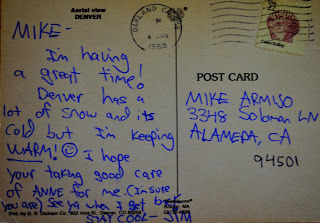 Aerial view
DENVER
MIKE-
I'm having
a great time!
Denver has a
lot of snow and its
cold but I'm keeping
WARM! I hope
your taking good care
of ANNE for me. (I'm sure
you are) See ya when I get back
STAY COOL- JIM
OAKLAND, CA
PM
4 JAN
1983
POST CARD
MIKE ARMIJO
3348 Solomon LN
ALAMEDA, CA
94501
Dist. by B. R. Dickson Co.